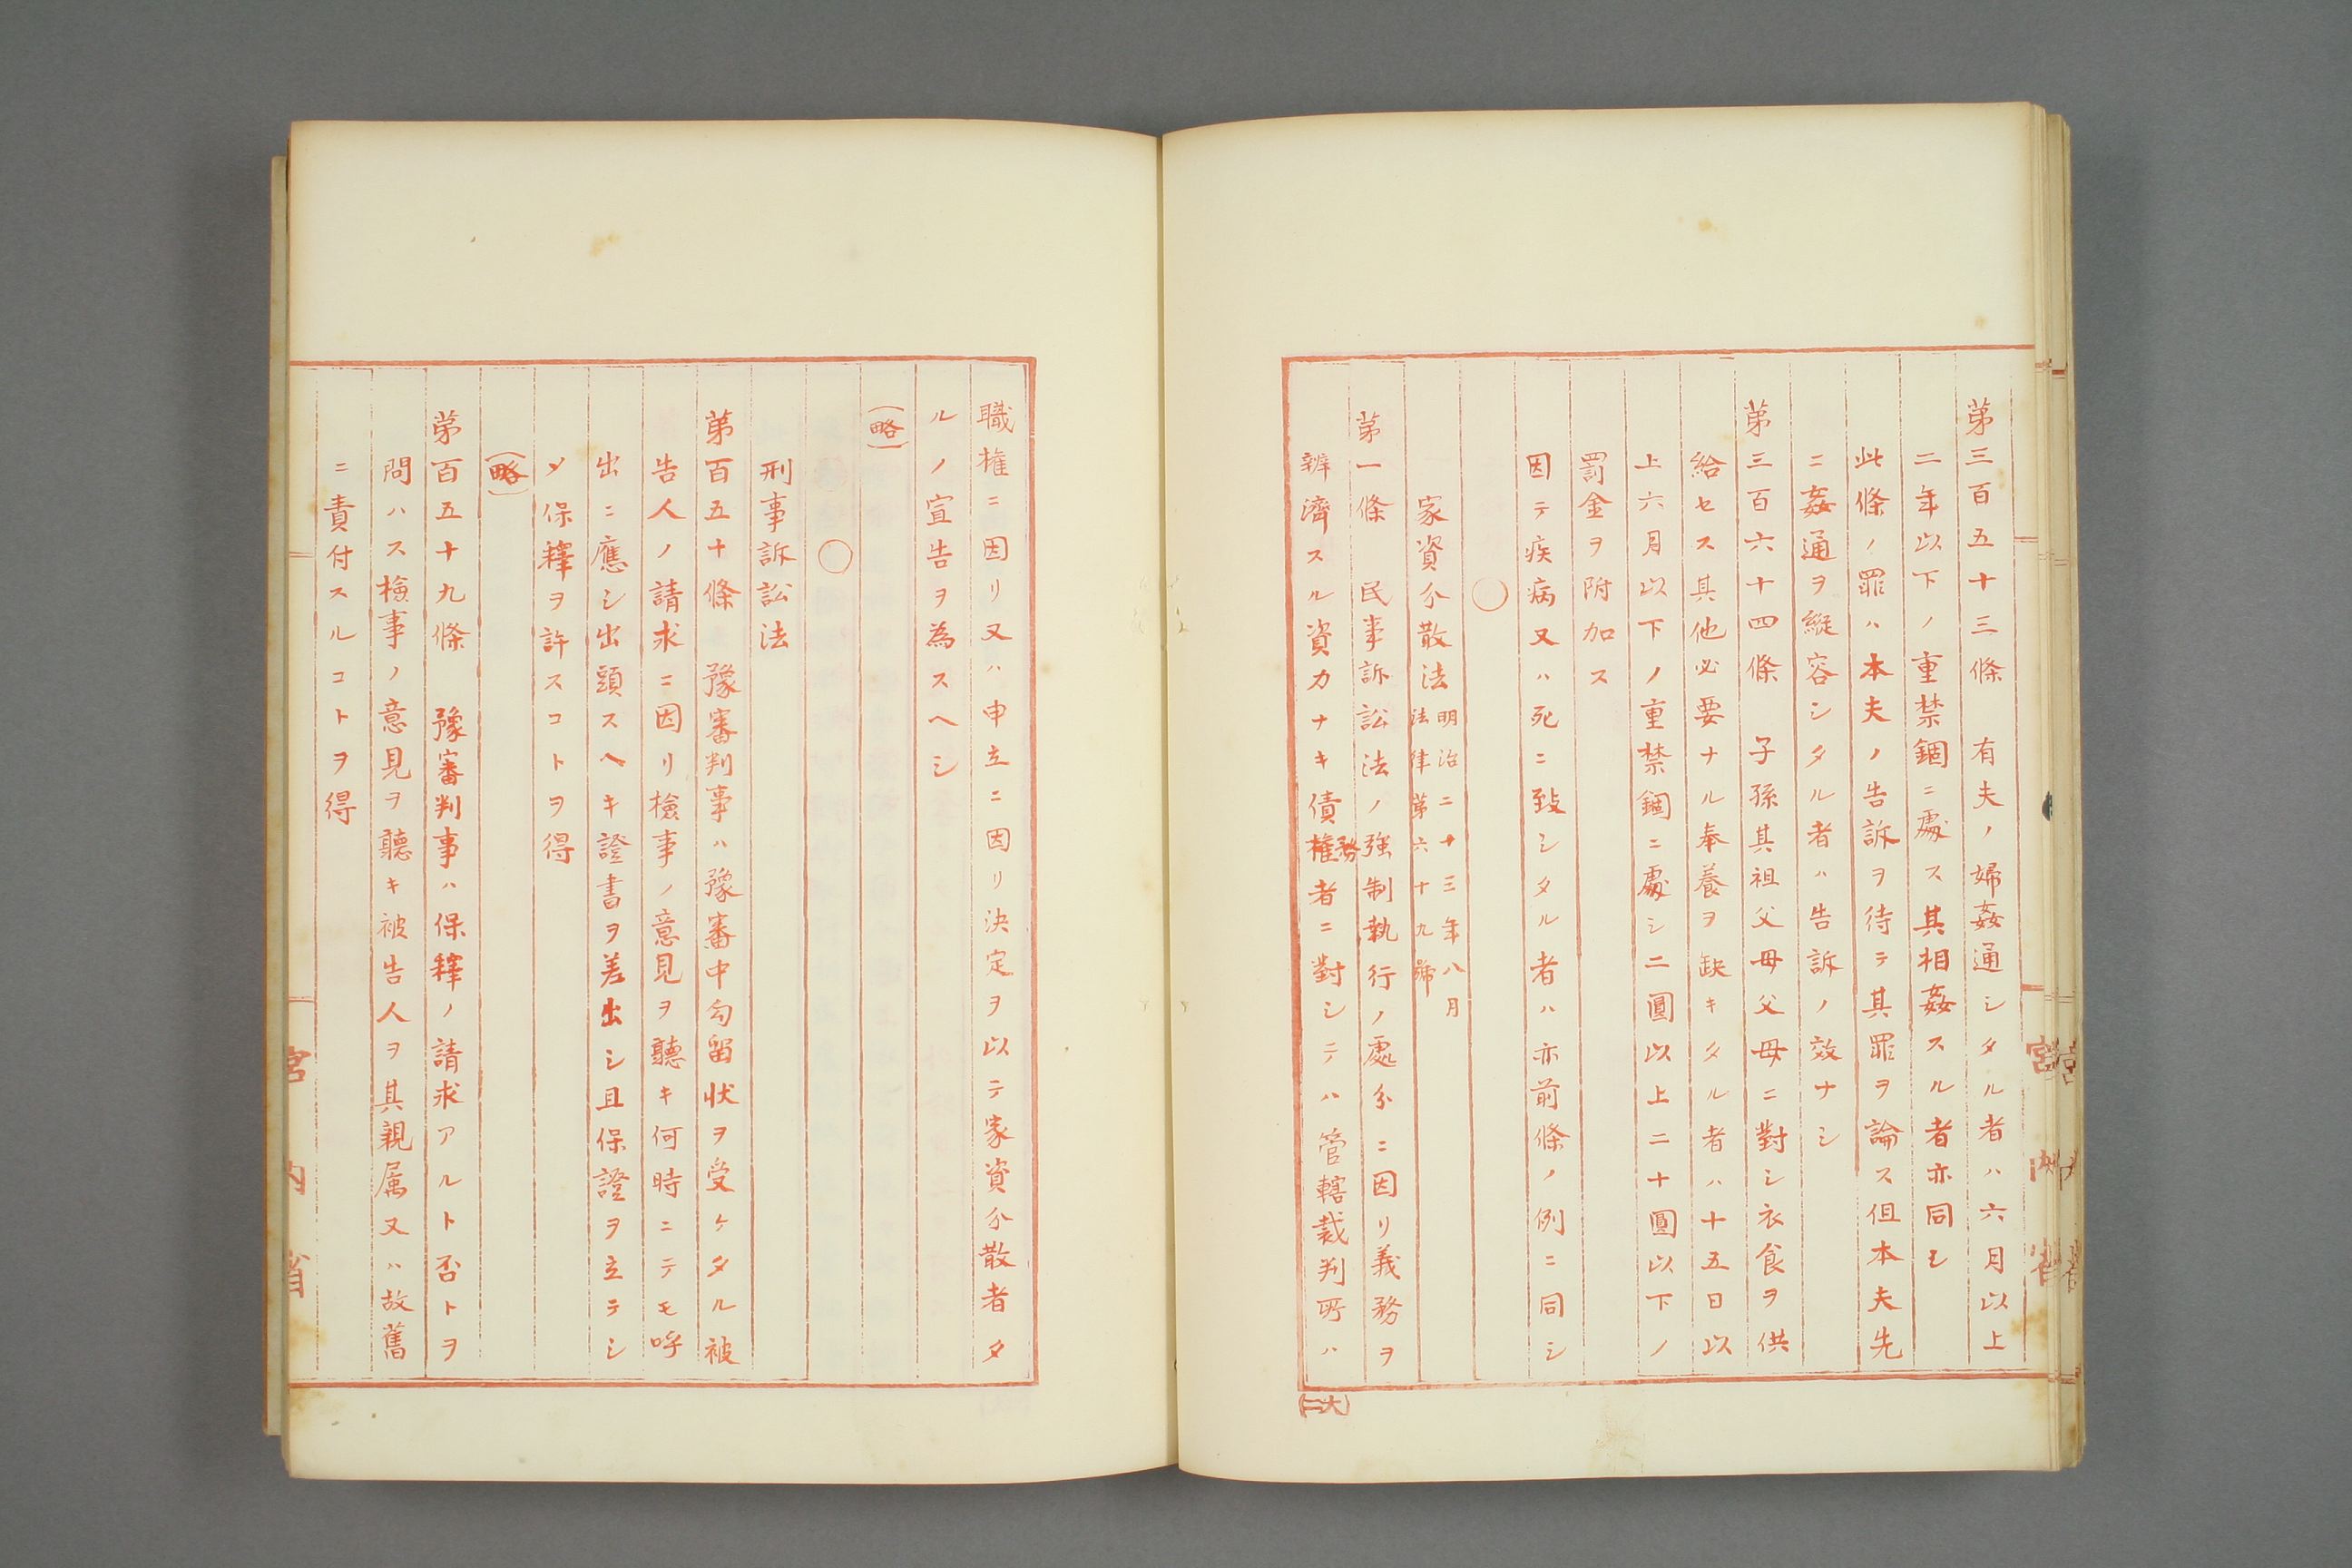 第三百五十三條　有夫ノ婦姦通シタル者ハ六月以上
二年以下ノ重禁錮ニ處ス其相姦スル者亦同シ
此條ノ罪ハ本夫ノ告訴ヲ待テ其罪ヲ論ス但本夫先
ニ姦通ヲ縦容シタル者ハ告訴ノ效ナシ
第三百六十四條　子孫其祖父母父母ニ對シ衣食ヲ供
給セス其他必要ナル奉養ヲ缺キタル者ハ十五日以
上六月以下ノ重禁錮ニ處シ二圓以上二十圓以下ノ
罰金ヲ附加ス
因テ疾病又ハ死ニ致シタル者ハ亦前條ノ例ニ同シ
○
家資分散法
明治二十三年八月
法律第六十九號
第一條　民事訴訟法ノ強制執行ノ處分ニ因リ義務ヲ
辨濟スル資力ナキ債權者ニ對シテハ管轄裁判所ハ
務
(二大)
宮內省
職権ニ因リ又ハ申立ニ因リ決定ヲ以テ家資分散者タ
ルノ宣告ヲ為スヘシ
(略)
○
刑事訴訟法
第百五十條　豫審判事ハ豫審中勾留状ヲ受ケタル被
告人ノ請求ニ因リ檢事ノ意見ヲ聽キ何時ニテモ呼
出ニ應シ出頭スヘキ證書ヲ差出シ且保證ヲ立テシ
メ保釋ヲ許スコトヲ得
(略)
第百五十九條　豫審判事ハ保釋ノ請求アルト否トヲ
問ハス檢事ノ意見ヲ聽キ被告人ヲ其親属又ハ故舊
ニ責付スルコトヲ得
宮內省